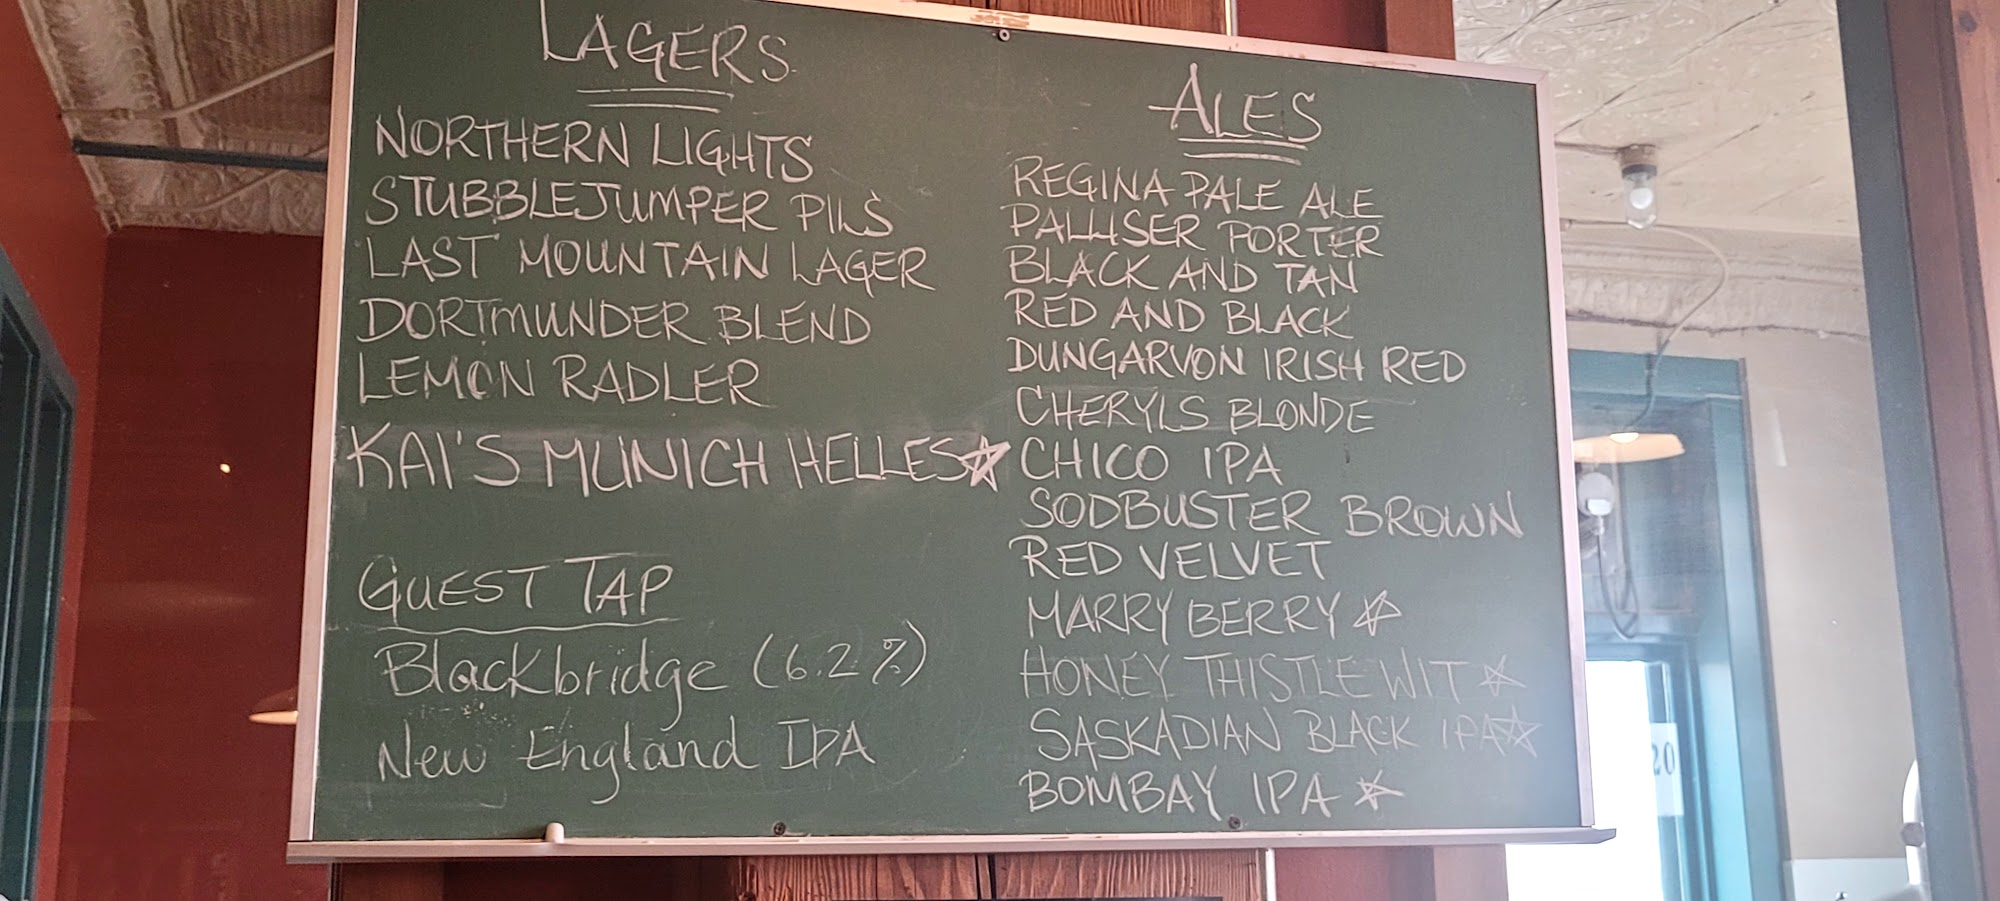 LAGERS
NORTHERN LIGHTS
STUBBLEJUMPER PILS
LAST MOUNTAIN LAGER
DORTMUNDER BLEND
LEMON RADLER
KAI'S MUNICH HELLES☆
GUEST TAP
Blackbridge (6.2%)
New England IPA
ALES
REGINA PALE ALE
PALLISER PORTER
BLACK AND TAN
RED AND BLACK
DUNGARVON IRISH RED
CHERYLS BLONDE
CHICO IPA
SODBUSTER BROWN
RED VELVET
MARRY BERRY ☆
HONEY THISTLE WIT ☆
SASKADIAN BLACK IPA☆
BOMBAY IPA ☆